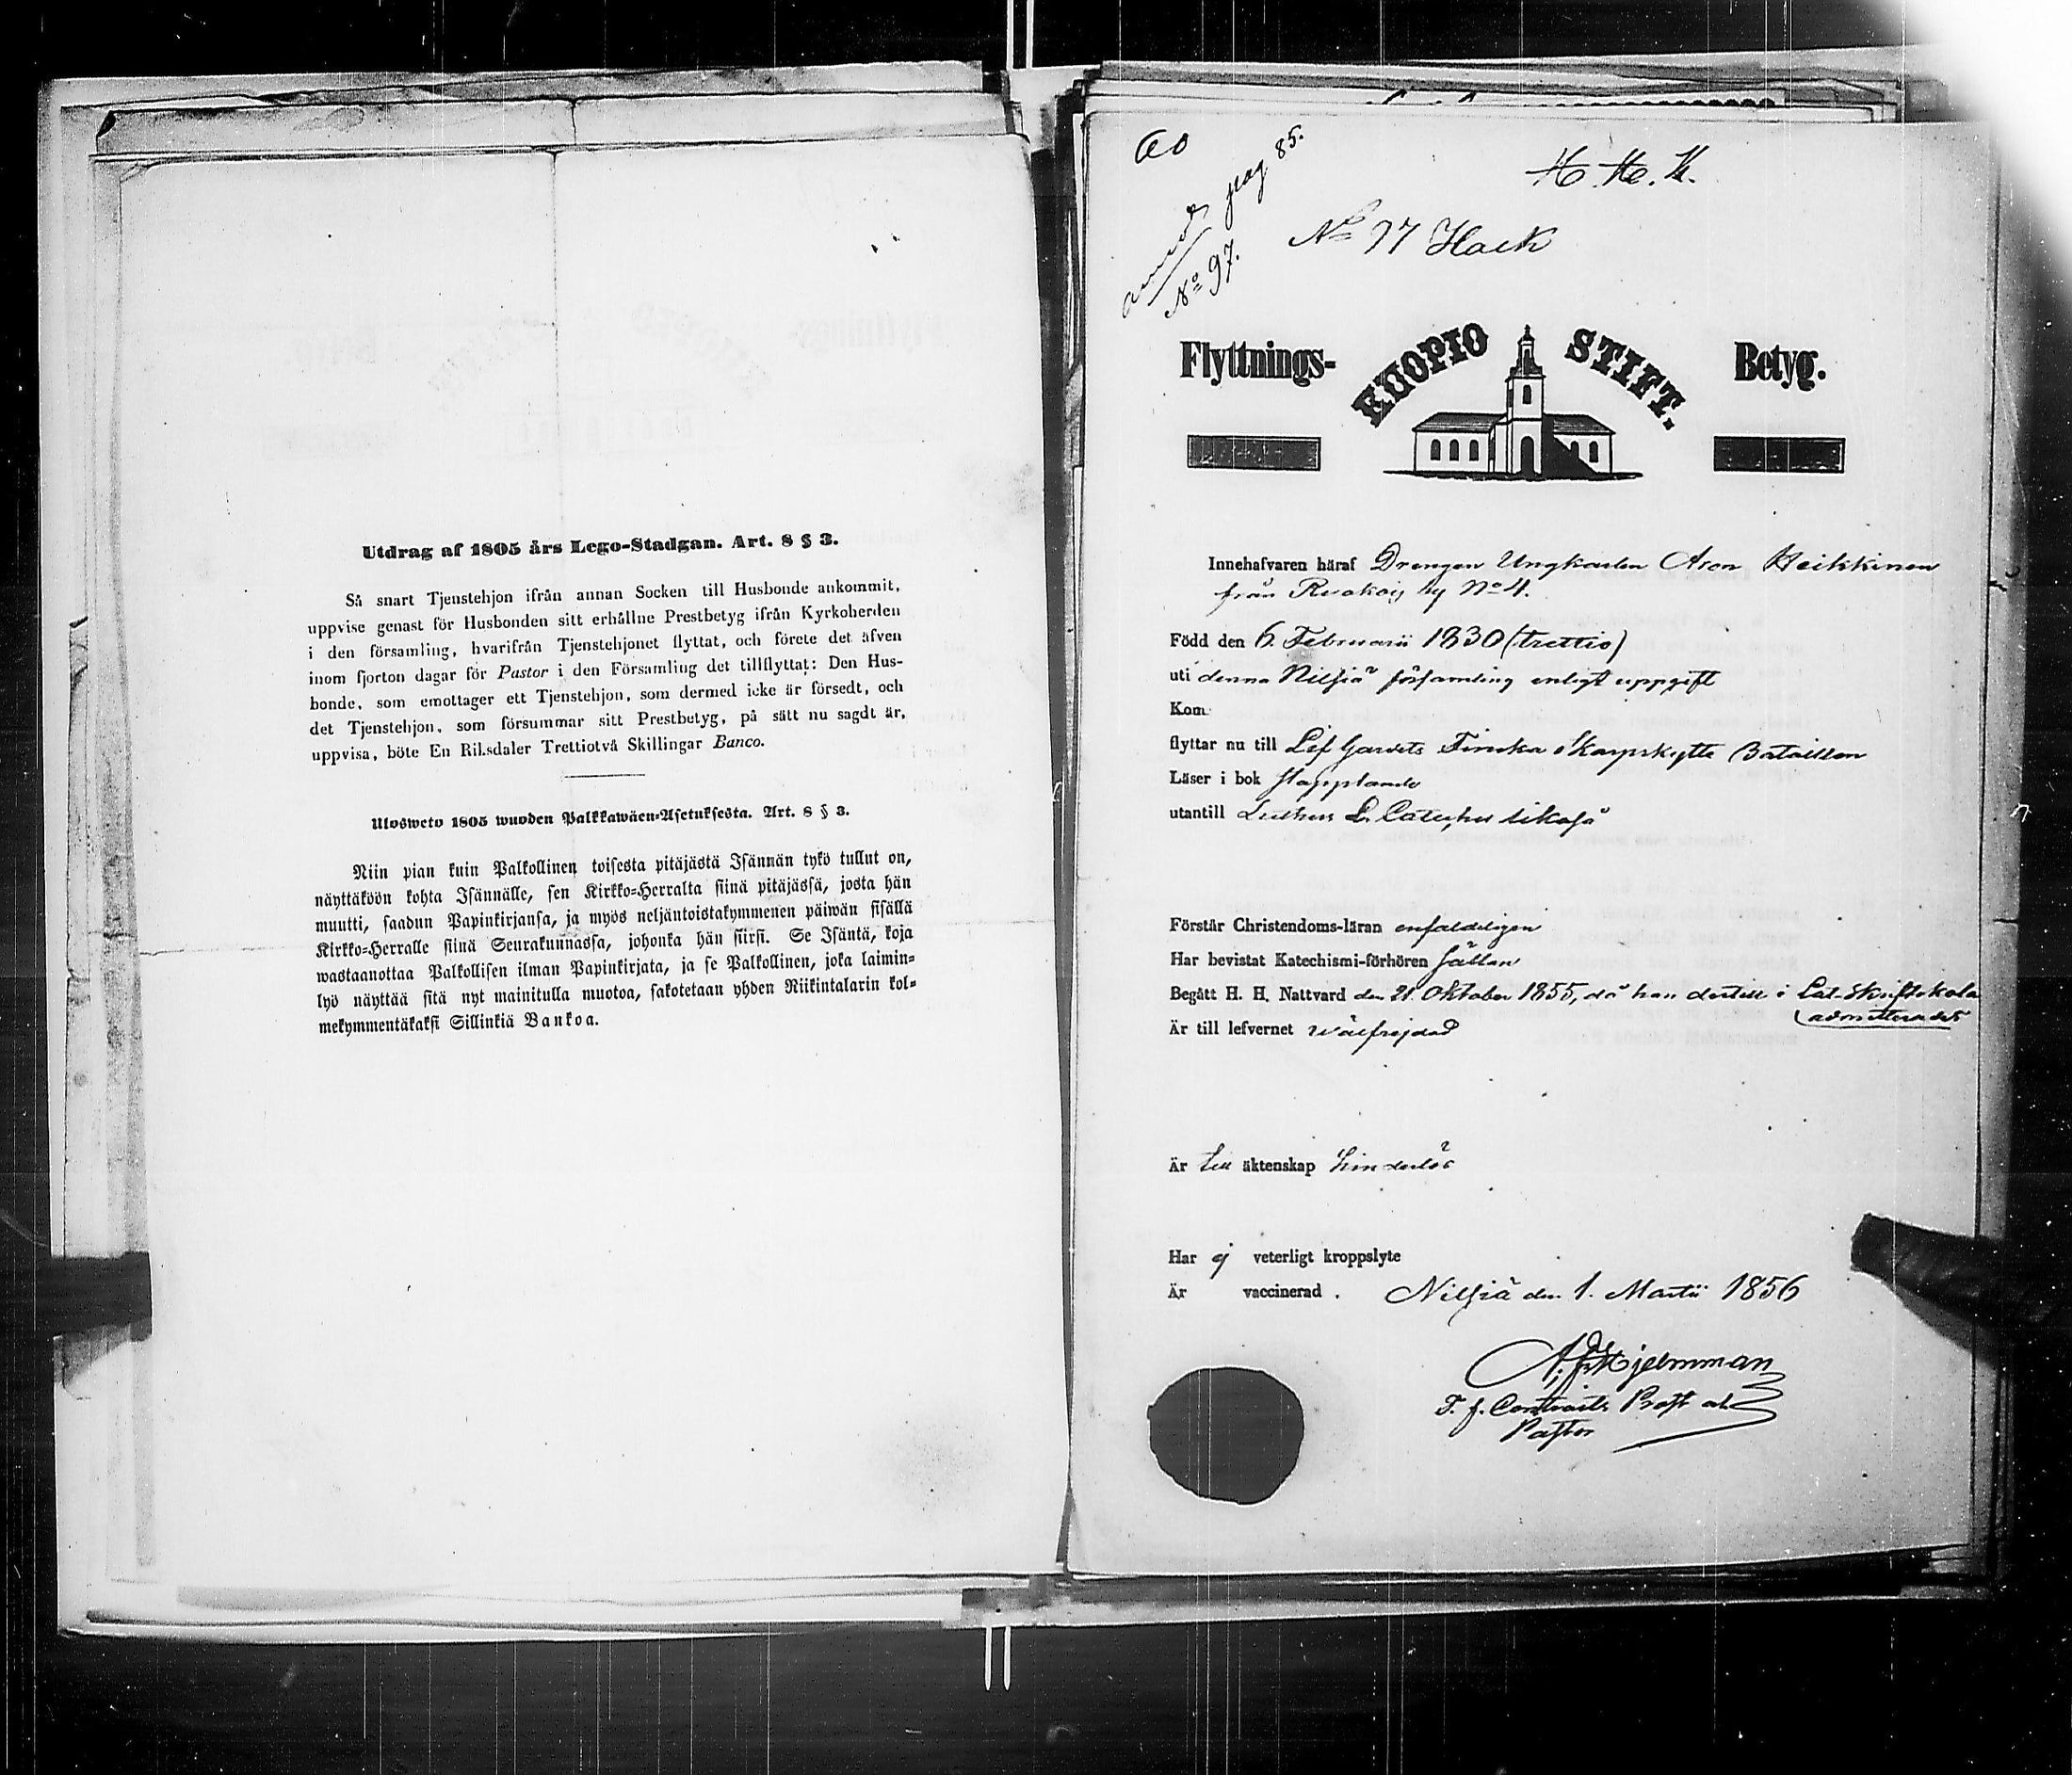 Utdrag af 1805 års Lego-Stadgan. Art. 8 § 3.
Så snart Tjenstehjon ifrån annan Socken till Husbonde ankommit,
uppvise genast för Husbonden sitt erhållne Prestbetyg ifrån Kyrkoherden
i den församling, hvarifrån Tjenstehjonet flyttat, och förete det äfven
inom fjorton dagar för Pastor i den Församling det tillflyttat: Den Hus-
bonde, som emottager ett Tjenstehjon, som dermed icke är försedt, och
det Tjenstehjon, som försummar sitt Prestbetyg, på sätt nu sagdt är,
uppvisa, böte En Riksdaler Trettiotvå Skillingar Banco.
Ulosweto 1805 wuoden Palkkawäen-Asetuksesta. Art. 8 § 3.
Niin pian kuin Palkollinen toisesta pitäjästä Isännän tykö tullut on,
näyttäköön kohta Isännälle, sen Kirkko-Herralta siinä pitäjässä, josta hän
muutti, saadun Papinkirjansa, ja myös neljäntoistakymmenen päiwän sisällä
Kirkko-Herralle siinä Seurakunnassa, johonka hän siirsi. Se Isäntä, koja
wastaanottaa Palkollisen ilman Papinkirjata, ja se Palkollinen, joka laimin-
lyö näyttää sitä nyt mainitulla muotoa, sakotetaan yhden Riikintalarin kol-
mekymmentäkaksi Sillinkiä Bankoa.
60
pag 85.
No 97.
No 97 Hack
Flyttnings- KUOPIO STIFT. Betyg.
Innehafvaren häraf Drengen Ungkarlen Aron Heikkinen
från by No 4.
Född den 6. Februarii 1830 (trettio)
uti denna Nilsiä församling enligt uppgift
Kom
flyttar nu till Lif Gardets Finska Skarpskytte Bataillon
Läser i bok stapplande
utantill Luthers L. Cateches
Förstår Christendoms-läran enfaldeligen
Har bevistat Katechismi-förhören sällan
Begått H. H. Nattvard den 21 Oktober 1855, då han dertill i Lat. Skriftskola
admitterades
Är till lefvernet wälfrejdad
Är till äktenskap hinderlös
Har ej veterligt kroppslyte
Är vaccinerad. Nilsiä den 1. Martii 1856
Hjelmman
T. f. Contracts Prost
Pastor